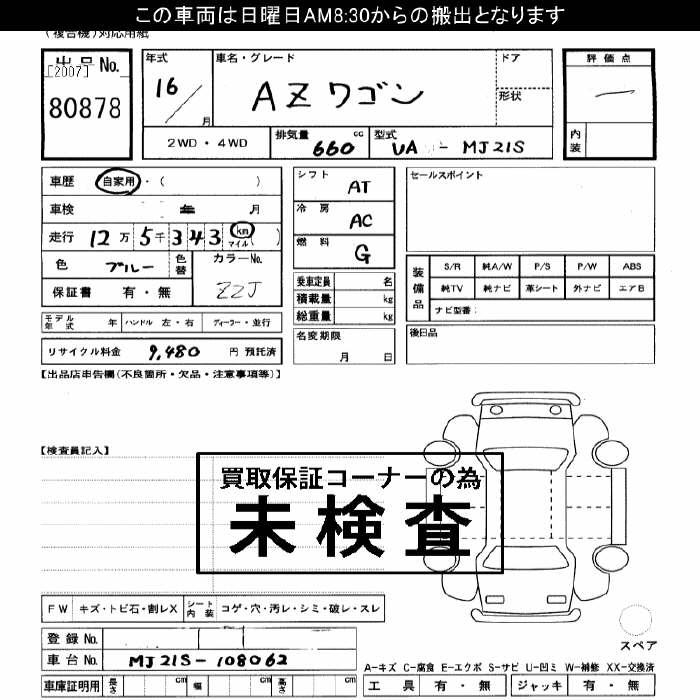 この車両は日曜日AM8:30からの搬出となります
(複合機)対応用紙
出品 No.
[2007]
80878
年式
16
月
車名・グレード
AZワゴン
ドア
形状
評価点
内装
2WD・4WD
排気量
660 cc
型式
UA - MJ21S
車歴 自家用・( )
車検 年 月
走行 12万5千343 km マイル ( )
色 ブルー
色替
カラーNo.
ZZJ
保証書 有・無
シフト AT
冷房 AC
燃料 G
乗車定員 名
積載量 kg
総重量 kg
名変期限
月 日
セールスポイント
装備品
S/R 純A/W P/S P/W ABS
純TV 純ナビ 革シート 外ナビ エアB
ナビ型番:
後日品
モデル年式 年 ハンドル 左・右 ディーラー・並行
リサイクル料金 9,480 円 預託済
【出品店申告欄(不良箇所・欠品・注意事項等)】
【検査員記入】
買取保証コーナーの為
未検査
FW キズ・トビ石・割レX シート内装 コゲ・穴・汚レ・シミ・破レ・スレ
登録 No.
車台 No. MJ21S-108062
車庫証明用 長さ cm 幅 cm 高さ cm
スペア
A-キズ C-腐食 E-エクボ S-サビ U-凹ミ W-補修 XX-交換済
工具 有・無 ジャッキ 有・無